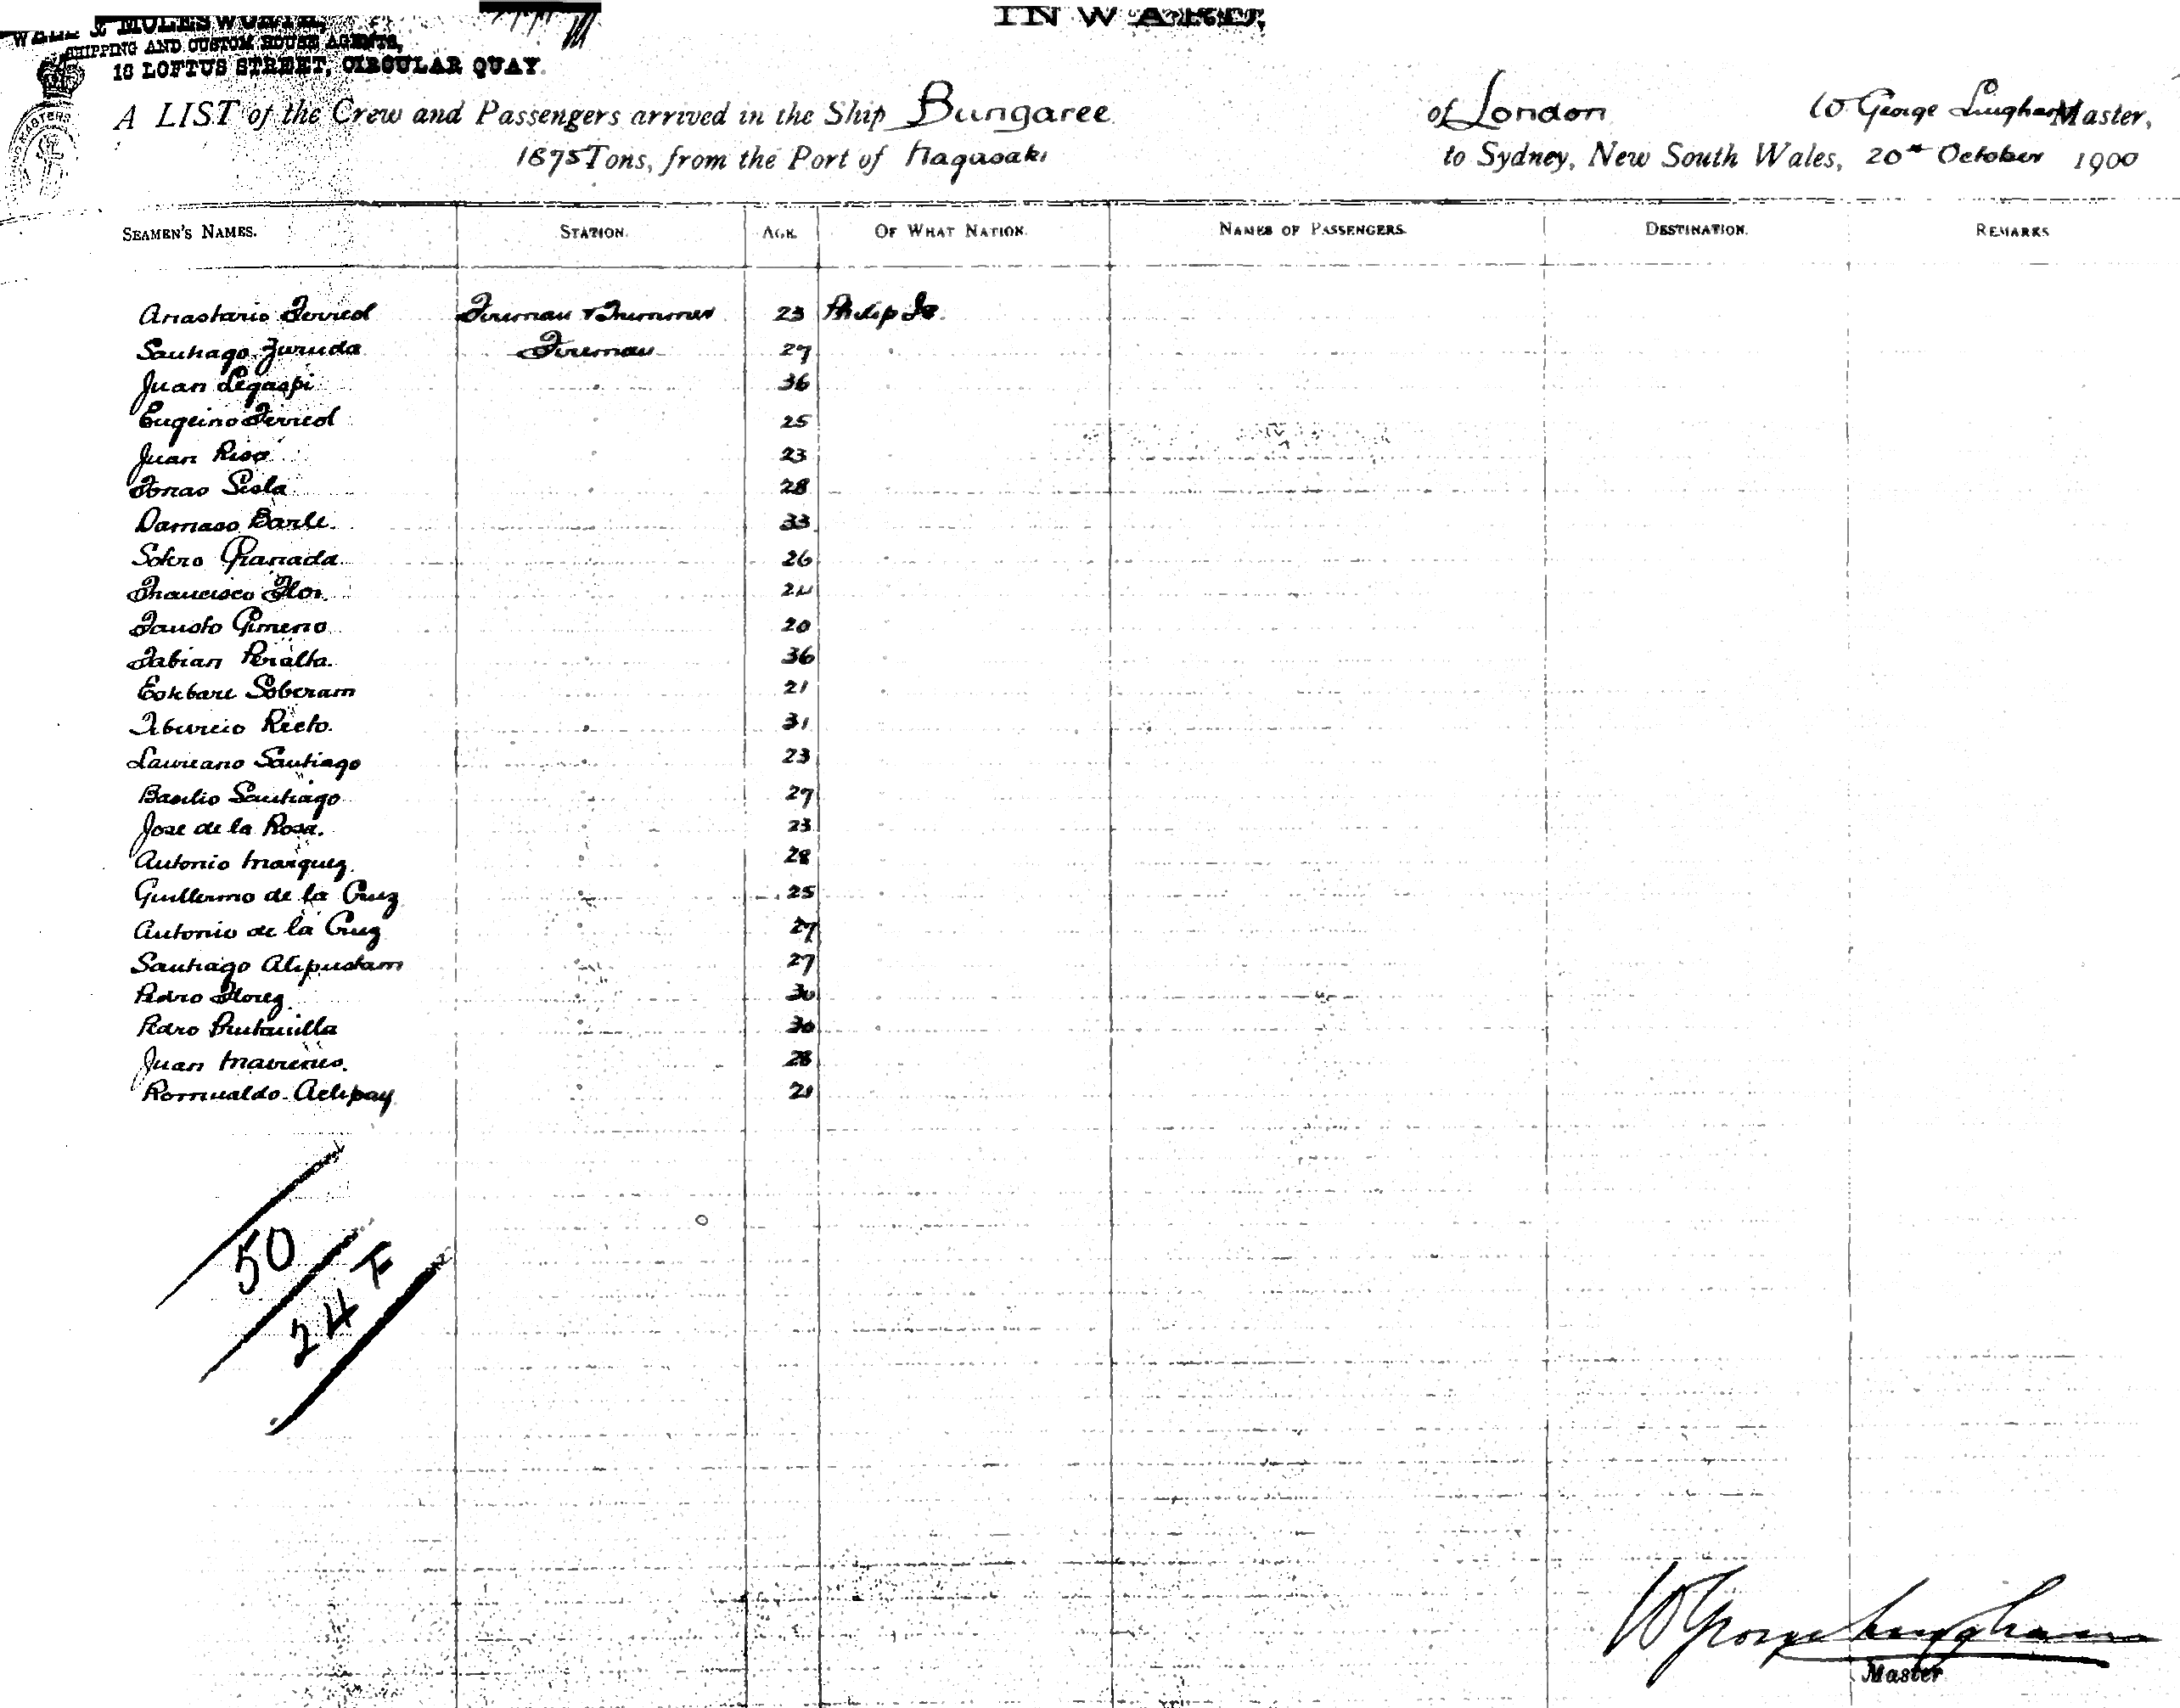 WALL & MOLESWORTH,
SHIPPING AND CUSTOM HOUSE AGENTS,
18 LOFTUS STREET, CIRCULAR QUAY.
INWARD.
A LIST of the Crew and Passengers arrived in the Ship Bungaree of London W George Lingham Master,
1875 Tons, from the Port of Nagasaki to Sydney, New South Wales, 20th October 1900
SEAMEN'S NAMES. STATION. AGE. OF WHAT NATION. NAMES OF PASSENGERS. DESTINATION. REMARKS
Anastario Ferriol Fireman & Trimmer 23 Philip Is.
Santiago Zuruda Fireman 27
Juan Legaspi 36
Eugeino Ferriol 25
Juan Risa 23
Tomas Sisla 28
Damaso Barle. 33
Sotero Granada 26
Francisco Flor. 24
Fausto Gimeno 20
Fabian Peralta. 36
Estebare Soberam 21
Tiburcio Recto. 31
Laureano Santiago 23
Basilio Santiago 27
Jose de la Rosa. 23
Antonio Marquez. 28
Guillermo de la Cruz 25
Antonio de la Cruz 27
Santiago Alipustam 27
Pedro Florez 30
Pedro 30
Juan 28
Romualdo Aclipay 21
50
24 F
W George Lingham
Master